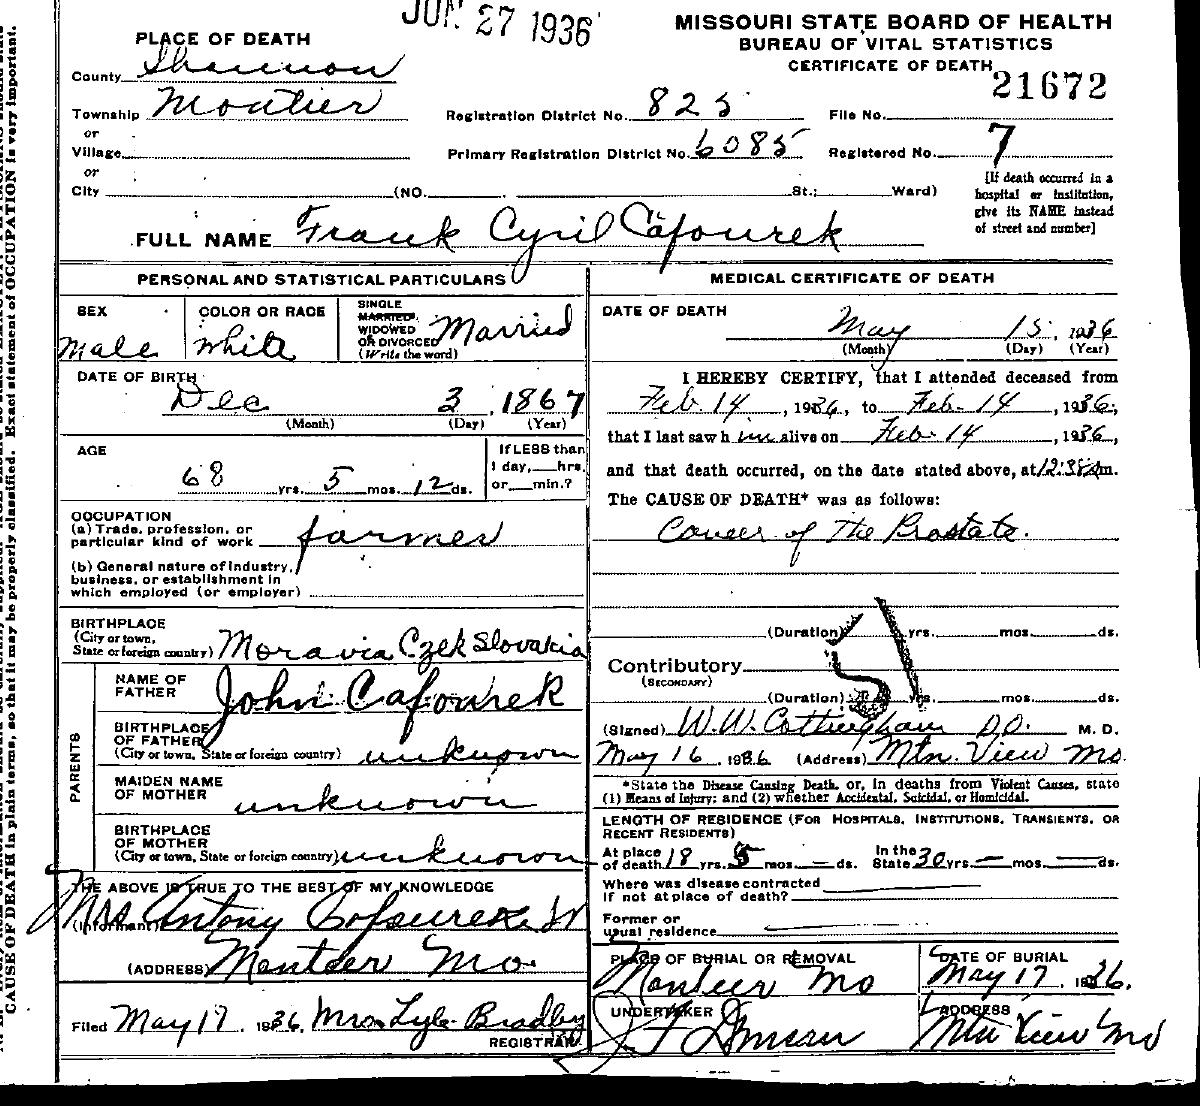 JUN 27 1936
MISSOURI STATE BOARD OF HEALTH
BUREAU OF VITAL STATISTICS
CERTIFICATE OF DEATH
21672
PLACE OF DEATH
County Shannon
Township Montier
or
Village
or
City (NO. St.; Ward)
Registration District No. 825
Primary Registration District No. 6085
File No.
Registered No. 7
[If death occurred in a
hospital or institution,
give its NAME instead
of street and number]
FULL NAME Frank Cyril Cafourek
PERSONAL AND STATISTICAL PARTICULARS
SEX
Male
COLOR OR RACE
White
SINGLE
MARRIED,
WIDOWED
OR DIVORCED
(Write the word)
Married
DATE OF BIRTH
Dec 3, 1867
(Month) (Day) (Year)
AGE
68 yrs. 5 mos. 12 ds.
If LESS than
1 day, hrs.
or min.?
OCCUPATION
(a) Trade, profession, or
particular kind of work farmer
(b) General nature of industry,
business, or establishment in
which employed (or employer)
BIRTHPLACE
(City or town,
State or foreign country) Moravia CzekSlovakia
PARENTS
NAME OF
FATHER John Cafourek
BIRTHPLACE
OF FATHER
(City or town, State or foreign country) unknown
MAIDEN NAME
OF MOTHER unknown
BIRTHPLACE
OF MOTHER
(City or town, State or foreign country) unknown
THE ABOVE IS TRUE TO THE BEST OF MY KNOWLEDGE
(Informant) Mrs Antony Cofourek Jr
(ADDRESS) Monteer Mo.
Filed May 17, 1936, Mrs Lyle Bradley
REGISTRAR
MEDICAL CERTIFICATE OF DEATH
DATE OF DEATH
May 15, 1936
(Month) (Day) (Year)
I HEREBY CERTIFY, that I attended deceased from
Feb. 14, 1936, to Feb. 14, 1936,
that I last saw him alive on Feb. 14, 1936,
and that death occurred, on the date stated above, at 12:38 am.
The CAUSE OF DEATH* was as follows:
Cancer of The Prostate.
(Duration) yrs. mos. ds.
51
Contributory
(SECONDARY)
(Duration) yrs. mos. ds.
(Signed) W.W. Cottingham D.O. M. D.
May 16, 1936 (Address) Mtn. View Mo.
*State the Disease Causing Death, or, in deaths from Violent Causes, state
(1) Means of Injury; and (2) whether Accidental, Suicidal, or Homicidal.
LENGTH OF RESIDENCE (FOR HOSPITALS, INSTITUTIONS, TRANSIENTS, OR
RECENT RESIDENTS)
At place of death 18 yrs. 5 mos. — ds. In the State 30 yrs. — mos. — ds.
Where was disease contracted
if not at place of death?
Former or
usual residence
PLACE OF BURIAL OR REMOVAL
Monteer Mo
DATE OF BURIAL
May 17, 1936.
UNDERTAKER
ADDRESS
Mtn View Mo
CAUSE OF DEATH in plain terms, so that it may be properly classified. Exact statement of OCCUPATION is very important.